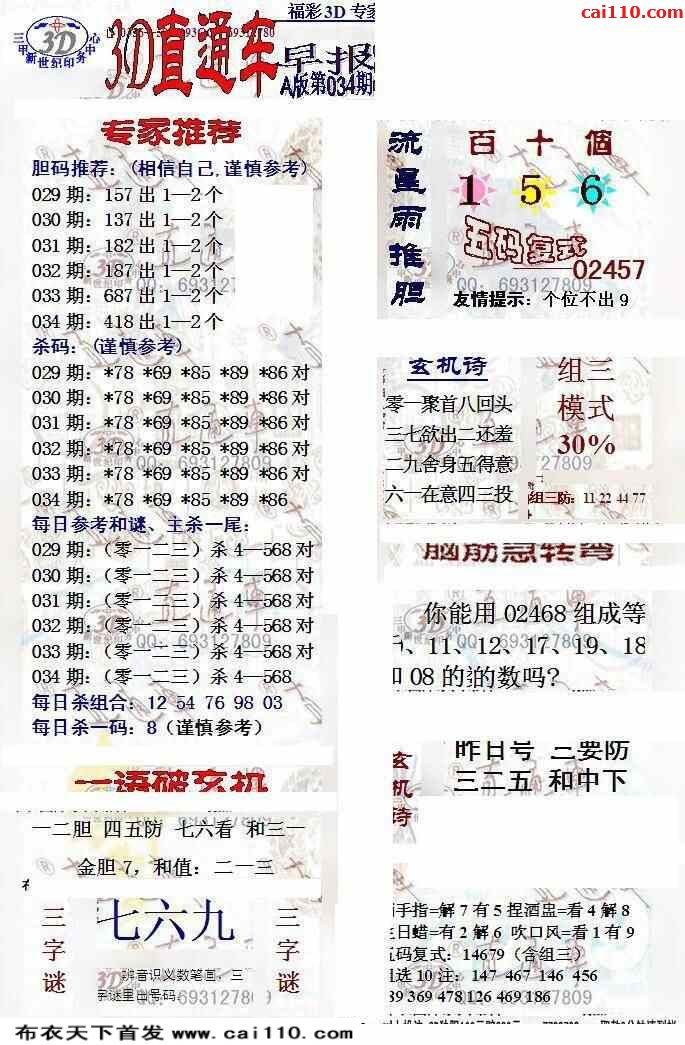 cai110.com
福彩3D 专家
三甲新世纪印务中心
3D
3D直通车
早报
A版第034期
专家推荐
胆码推荐：(相信自己,谨慎参考)
029 期：157 出 1—2 个
030 期：137 出 1—2 个
031 期：182 出 1—2 个
032 期：187 出 1—2 个
033 期：687 出 1—2 个
034 期：418 出 1—2 个
杀码：(谨慎参考)
029 期：*78 *69 *85 *89 *86 对
030 期：*78 *69 *85 *89 *86 对
031 期：*78 *69 *85 *89 *86 对
032 期：*78 *69 *85 *89 *86 对
033 期：*78 *69 *85 *89 *86 对
034 期：*78 *69 *85 *89 *86
每日参考和谜、主杀一尾：
029 期：（零一二三）杀 4—568 对
030 期：（零一二三）杀 4—568 对
031 期：（零一二三）杀 4—568 对
032 期：（零一二三）杀 4—568 对
033 期：（零一二三）杀 4—568 对
034 期：（零一二三）杀 4—568
每日杀组合：12 54 76 98 03
每日杀一码：8（谨慎参考）
一语破玄机
一二胆 四五防 七六看 和三一
金胆 7，和值：二一三
三字谜
七六九
三字谜
辨音识义数笔画，三
字谜里出号码。
流星雨推胆
百 十 個
1 5 6
五码复式
02457
友情提示：个位不出 9
玄机诗
零一聚首八回头
三七欲出二还羞
二九舍身五得意
六一在意四三投
组三
模式
30%
组三防：11 22 44 77
脑筋急转弯
你能用 02468 组成等
、11、12、17、19、18
08 的的数吗?
玄机诗
昨日号 三要防
三二五 和中下
手指=解 7 有 5 捏酒盅=看 4 解 8
生日蜡=有 2 解 6 吹口风=看 1 有 9
五码复式：14679（含组三）
组选 10 注：147 467 146 456
39 369 478 126 469 186
QQ：693127809
布衣天下首发 www.cai110.com